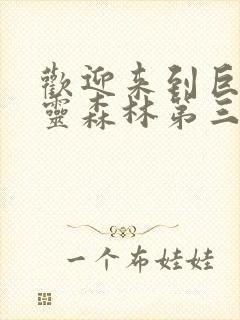 歡迎来到巨
靈森林第三
一个布娃娃